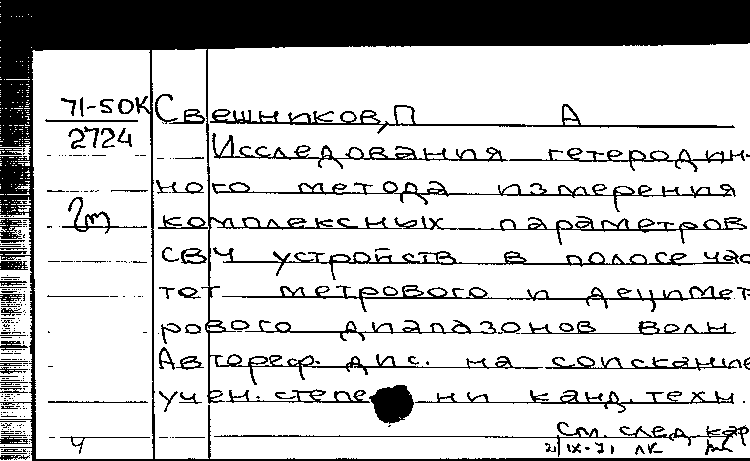 71-50К Свешников, П А
2724 Исследования гетеродин-
ного метода измерения
2т комплексных параметров
СВЧ устройств в полосе час
тот метрового и децимет
рового диапазонов волн
Автореф. дис. на соискание
учен. степени канд. техн.
См. след. кар
4 21/IX-71 ЛК